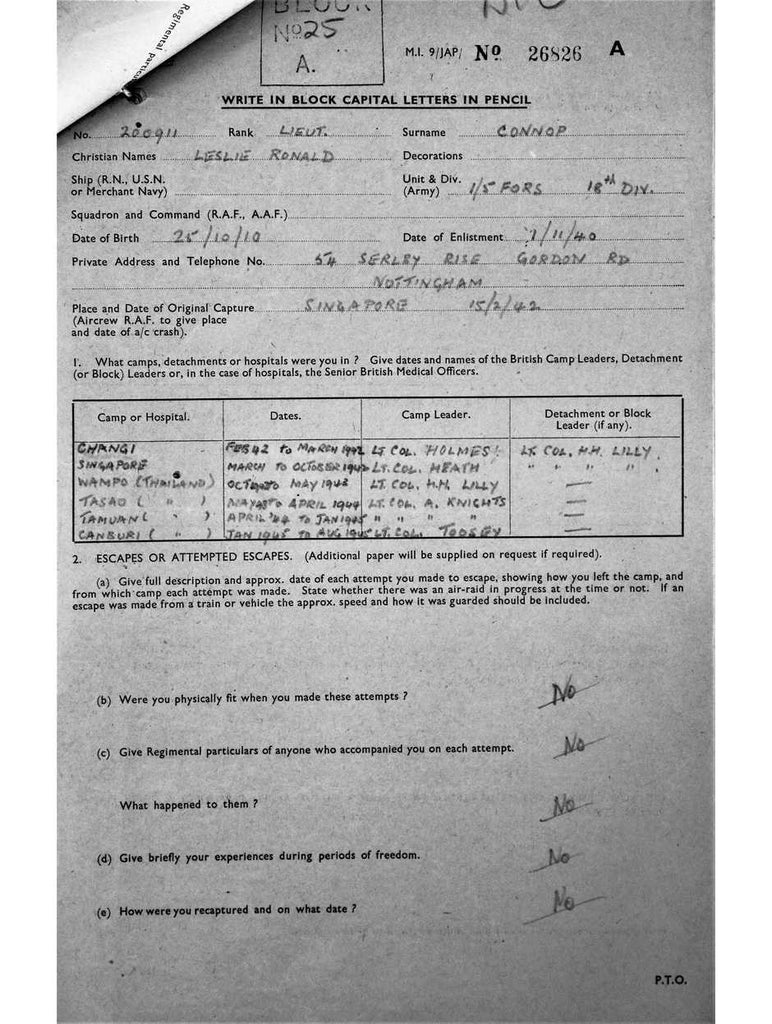 Regimental particu
BLOCK
No 25
A.
M.I. 9/JAP/ No. 26826 A
WRITE IN BLOCK CAPITAL LETTERS IN PENCIL
No. 200911 Rank LIEUT. Surname CONNOP
Christian Names LESLIE RONALD Decorations
Ship (R.N., U.S.N. or Merchant Navy)
Unit & Div. (Army) 1/5 FORS 18th DIV.
Squadron and Command (R.A.F., A.A.F.)
Date of Birth 25/10/10 Date of Enlistment 7/11/40
Private Address and Telephone No. 54 SERLBY RISE GORDON RD
NOTTINGHAM
Place and Date of Original Capture SINGAPORE 15/2/42
(Aircrew R.A.F. to give place
and date of a/c crash).
1. What camps, detachments or hospitals were you in ? Give dates and names of the British Camp Leaders, Detachment
(or Block) Leaders or, in the case of hospitals, the Senior British Medical Officers.
Camp or Hospital. Dates. Camp Leader. Detachment or Block Leader (if any).
CHANGI FEB 42 to MARCH 1942 LT COL. HOLMES LT. COL. H.H. LILLY
SINGAPORE MARCH TO OCTOBER 1942 LT. COL. HEATH " " " "
WAMPO (THAILAND) OCT TO MAY 1943 LT. COL. H.H. LILLY —
TASAO ( " ) MAY 43 TO APRIL 1944 LT. COL. A. KNIGHTS —
TAMUAN ( " ) APRIL '44 TO JAN 1945 " " " " —
CANBURI ( " ) JAN 1945 TO AUG 1945 LT. COL. TOOSEY —
2. ESCAPES OR ATTEMPTED ESCAPES. (Additional paper will be supplied on request if required).
(a) Give full description and approx. date of each attempt you made to escape, showing how you left the camp, and
from which camp each attempt was made. State whether there was an air-raid in progress at the time or not. If an
escape was made from a train or vehicle the approx. speed and how it was guarded should be included.
(b) Were you physically fit when you made these attempts ? No
(c) Give Regimental particulars of anyone who accompanied you on each attempt. No
What happened to them ? No
(d) Give briefly your experiences during periods of freedom. No
(e) How were you recaptured and on what date ? No
P.T.O.